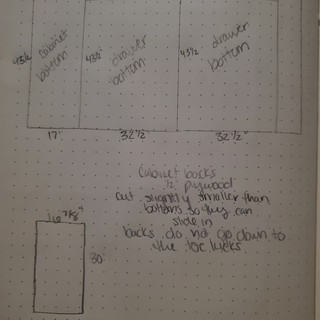 43½ cabinet bottom
43½ drawer bottom
43½ drawer bottom
17" 32½" 32½"
Cabinet backs
½" plywood
cut slightly smaller than
bottoms so they can
slide in
backs do not go down to
the toe kicks
16⅞"
30"